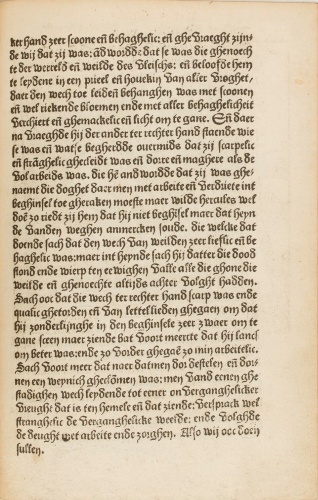 ker hand zeer scoone eñ behaghelic: eñ ghe vraeght zijn-
de wij dat zij was: ãdwordd: dat se was die ghenoech
te der werreld eñ weilde des vleischs: eñ beloofde hem
te leydene in een prieel eñ houekin van aller vroghet,
daer den wech toe leidende behanghen was met scoonen
eñ wel riekende bloemen ende met aller behaghelicheit
verchiert eñ ghemackelic eñ licht om te gane. Eñ daer
na vraeghde hij der ander ter rechter hand staende wie
se was eñ wat se begheerdde ouermids dat zij scarpelic
eñ strãghelic ghecleidt was eñ dorre eñ maghere als de
vol arbeids was. die hē andwordde dat zij was ghe-
naemt die doghet daer men met arbeite eñ verdriete int
beghinsel toe gheraken moeste maer wilde hercules wel
doē zo riedt zij hem dat hij niet beghisel maer dat heyn
de vanden weghen anmercken soude. die welcke dat
doende sach dat den wech van weilden zeer lieflic eñ be
haghelic was: maer int heynde sach hij datter die dood
stond ende wierp ten eewighen valle alle die ghone die
weilde eñ ghenoechte altijds achter volght hadden.
Sach ooc dat die wech ter rechter hand scarp was ende
qualic ghetorden eñ van lettel lieden ghegaen om dat
hij zonderlinghe in den beghinsele zeer zwaer om te
gane scen maer ziende dat voort meerrte dat hij lancs
om beter was: ende zo vorder ghegaē zo min arbeitelic.
Sach voort meer dat naer datmen dor destelen eñ dor-
nen een weynich gheclōmen was: men vand eenen ghe
stadighen wech leydende tot eener onverganghelicker
vreught dat is ten hemele eñ dat ziende: versprack wel
stranghelic de verganghelicke weelde: ende volghde
de deught met arbeite ende zorghen. Also wij ooc doen
sullen.